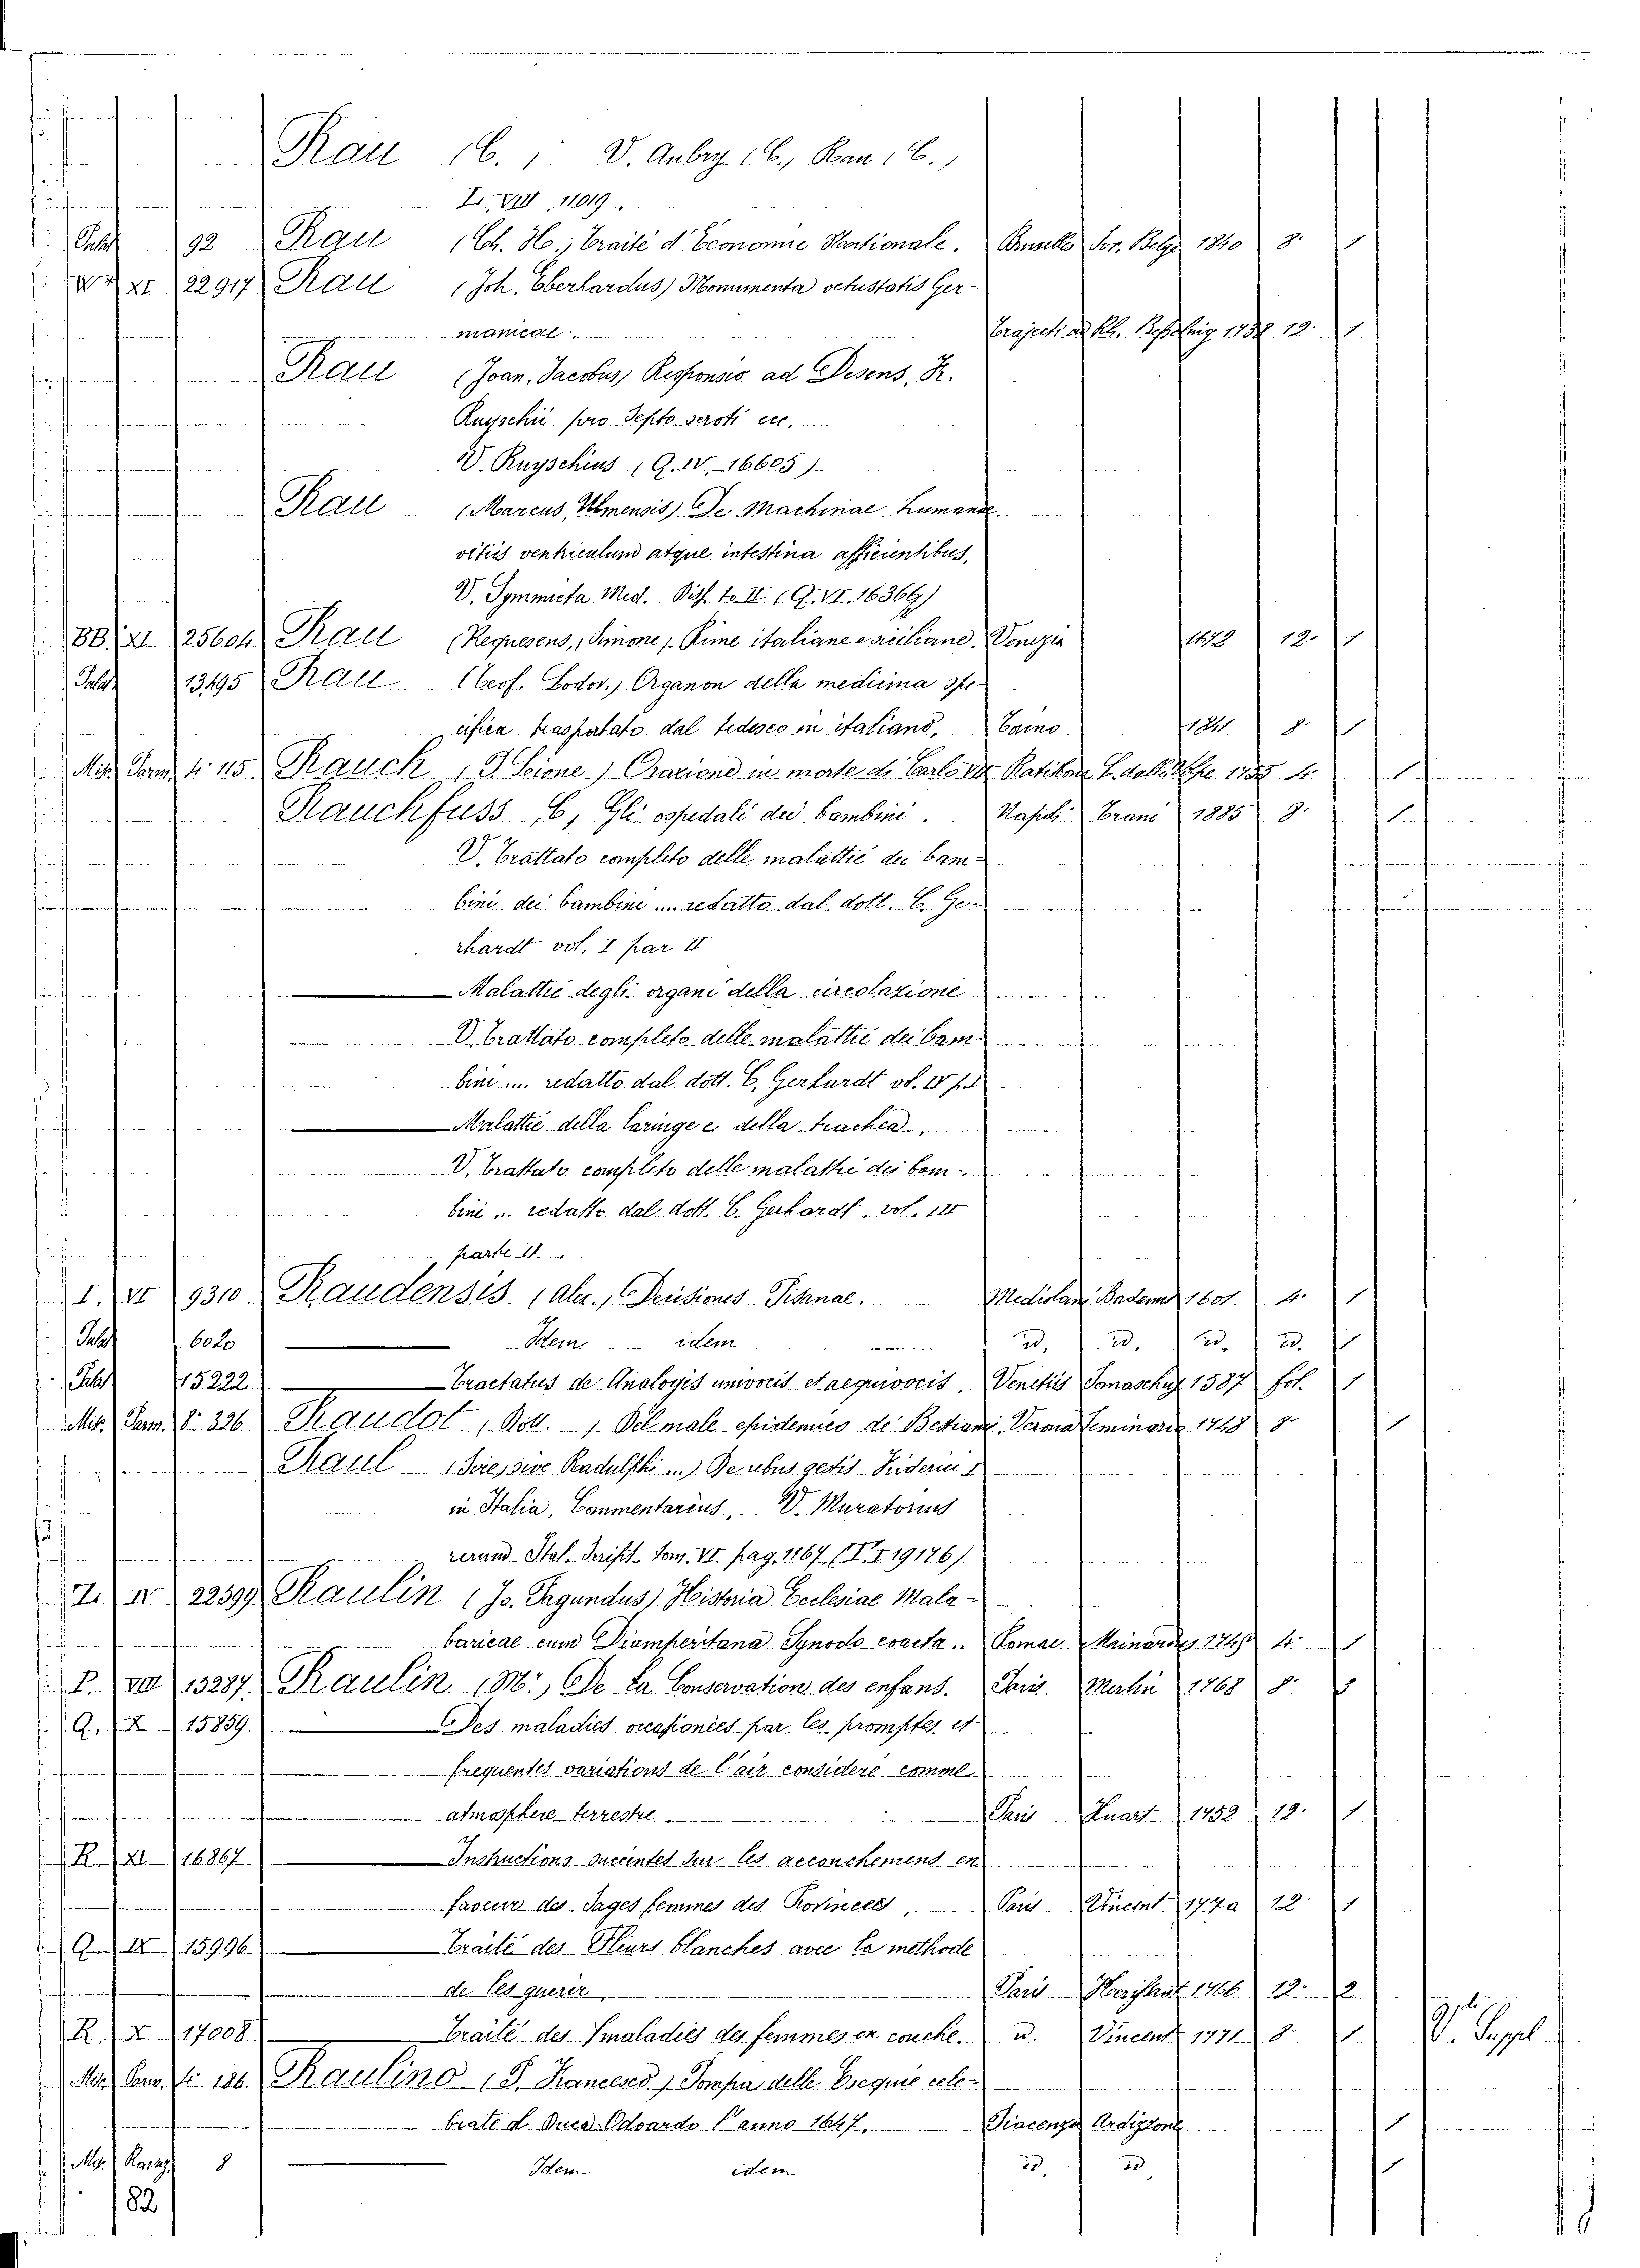 Rau (C., V. Aubry (C., Rau, C.,
L. VIII, 11019.
Palat 92 Rau (Ch. H., Traité d'Economie Nationale. Bruselles Soc. Belge 1840 8. 1
XI 22917 Rau (Joh. Eberhardus) Monumenta vetustatis Ger-
manicae. Trajecti ad Rh. 1738 12. 1
Rau (Joan. Jacobus, Responsio ad Defens. Fr.
Ruyschii pro Septo scroti etc.
V. Ruyschius (Q. IV, 16605)
Rau (Marcus, Ulmensis) De Machinae humanae
vitiis ventriculum atque intestina afficientibus,
V. Symmicta Med. to. II. (Q. VI. 16366)
BB. XI. 25604 Rau (Requesens, Simone, Rime italiane e siciliane. Venezia 1672 12. 1
Palat 13495 Rau (Teof. Lodov., Organon della medicina spe-
cifica trasportato dal tedesco in italiano, 1841 8. 1
Mis. Parm. 4° 115 Rauch Orazione in morte di Carlo VI. 1
Rauchfuss, C, Gli ospedali dei bambini. Napoli Trani 1885 8. 1
V. Trattato completo delle malattie dei bam-
bini dei bambini ... redatto dal dott. C. Ge-
rhardt vol. I par II
Malattie degli organi della circolazione
V. Trattato completo delle malattie dei bam-
bini ... redatto dal dott. C. Gerhardt vol. IV p. I
Malattie della laringe e della trachea,
V. Trattato completo delle malattie dei bam-
bini ... redatto dal dott. C. Gerhardt, vol. III
parte II.
I. VI 9310 Raudensis (Alex., Decisiones Pisanae. Mediolani 1601. 4. 1
Palat 6020 Idem idem id. id. id. id. 1
Palat 15222 Tractatus de Analogis univocis et aequivocis. Venetiis 1587 fol. 1
Mis. Parm. 8° 226 Raudot, Dott. , Del male epidemico de' Bestiami. Verona Seminario 1748 8. 1
Raul (Sire, sive Radulphi ...) De rebus gestis Friderici I
in Italia, Commentarius, V. Muratorius
rerum Ital. Script. tom. VI. pag. 1167. (T. I 19126)
Z. IV 22599 Raulin (Jo. Facundus) Historia Ecclesiae Mala-
baricae cum Diamperitana Synodo coacta.. Romae Mainardus 1745 4. 1
P. VIII 13287 Raulin (Mr., De la Conservation des enfans. Paris Merlin 1768 8.
Q. X 15859 Des maladies occasionées par les promptes et
frequentes variations de l'air considere comme
atmosphere terrestre Paris Huart 1752 12. 1
R. XI 16867 Instructions succintes sur les accouchemens en
faveur des Sages femmes des Provinces, Paris Vincent 1770 12. 1
Q. IX 15996 Traité des Fleurs blanches avec la methode
de les guerir Paris Herissant 1766 12. 2
R. X 17008 Traité des maladies des femmes en couche. id. Vincent 1771 8. 1 V. Suppl
Mis. Parm. 4° 186 Raulino (P. Francesco) Pompa delle Esequie cele-
brate d. Duca Odoardo l'anno 1647. Piacenza Ardizzone 1
8 Idem idem id. id. 1
82